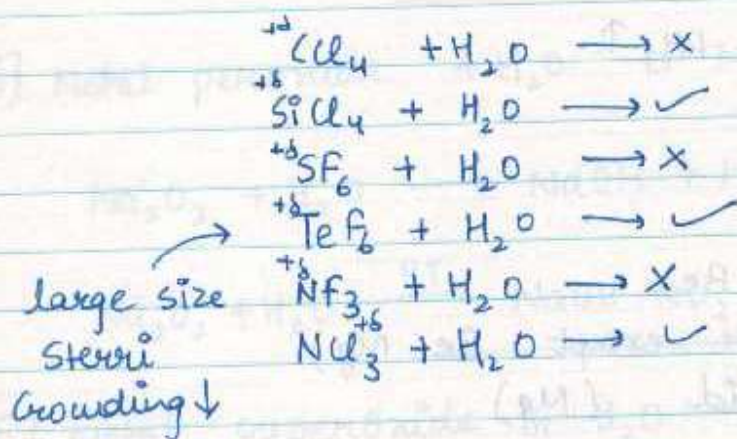 +δCCl4 + H2O ⟶ ×
+δSiCl4 + H2O ⟶ ✓
+δSF6 + H2O ⟶ ×
+δTeF6 + H2O ⟶ ✓
+δNF3 + H2O ⟶ ×
NCl3+δ + H2O ⟶ ✓
large size
sterri
crowding ↓